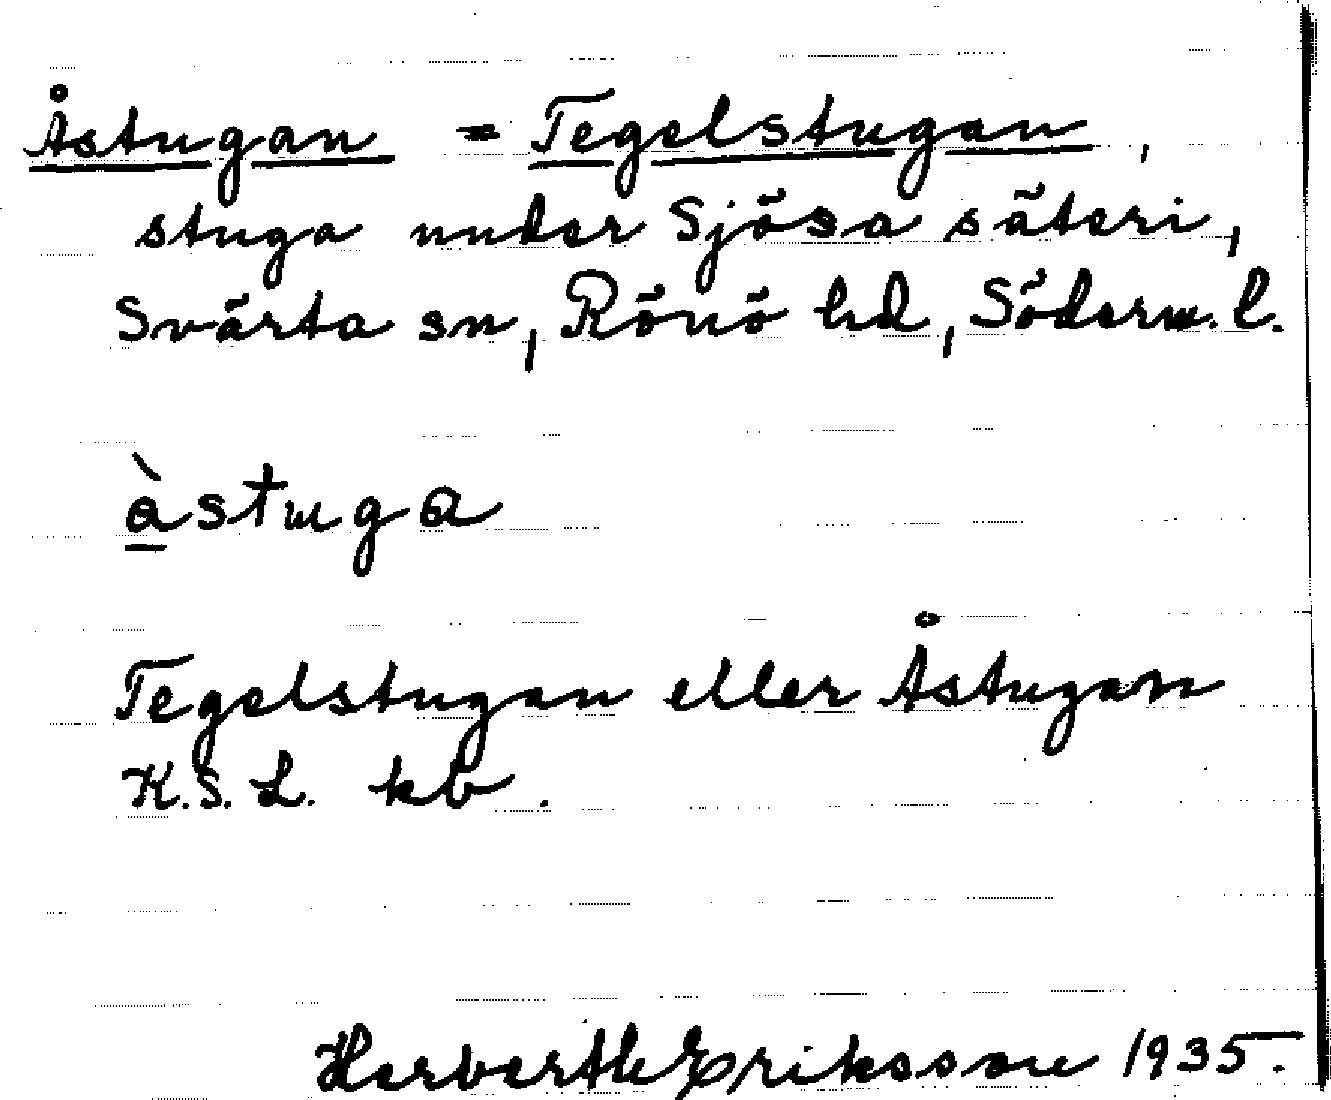 Åstugan = Tegelstugan,
stuga under Sjösa säteri,
Svärta sn, Rönö hd, Söderm. l.
à̱stuga
Tegelstugan eller Åstugan
K.S.L. kb.
Herberth Eriksson 1935.